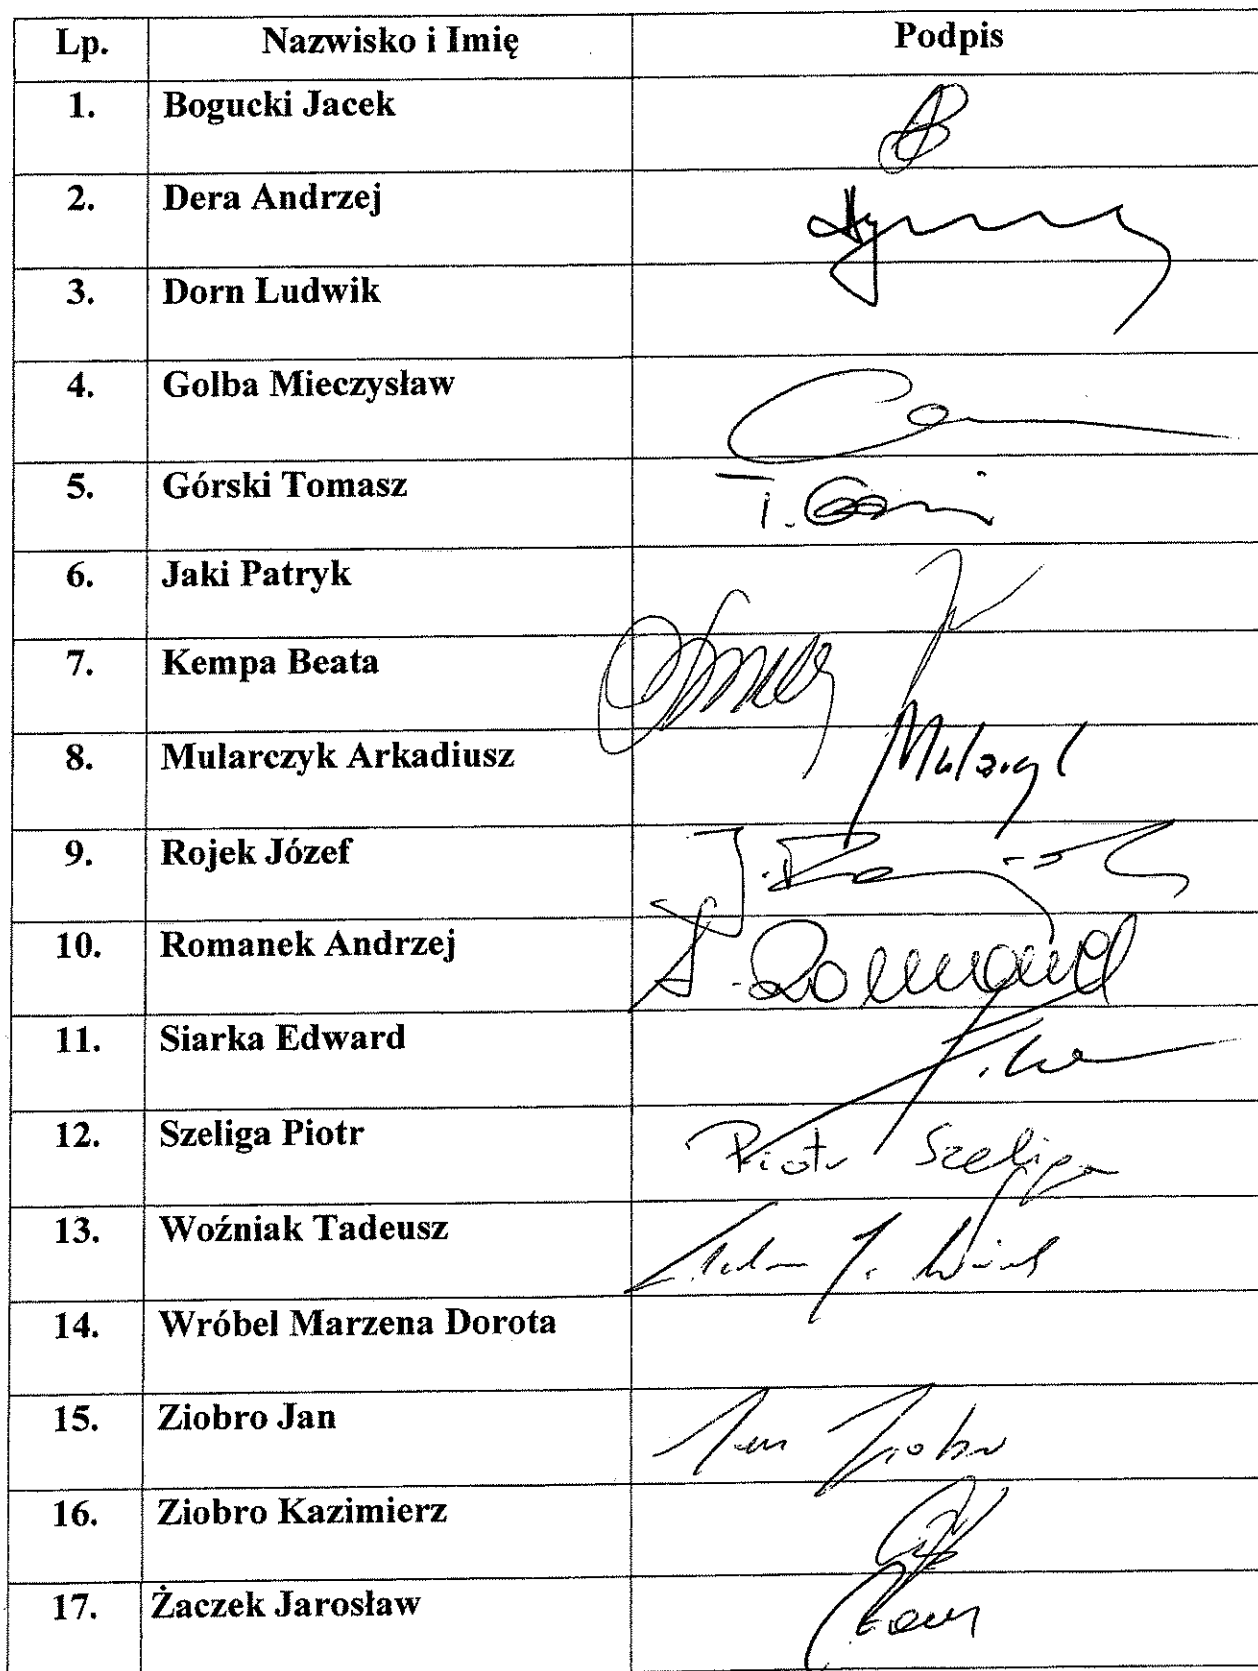 Lp. Nazwisko i Imię Podpis
1. Bogucki Jacek
2. Dera Andrzej
3. Dorn Ludwik
4. Golba Mieczysław
5. Górski Tomasz T.
6. Jaki Patryk
7. Kempa Beata
8. Mularczyk Arkadiusz
9. Rojek Józef J.
10. Romanek Andrzej A. Romanek
11. Siarka Edward
12. Szeliga Piotr Piotr Szeliga
13. Woźniak Tadeusz
14. Wróbel Marzena Dorota
15. Ziobro Jan Jan Ziobro
16. Ziobro Kazimierz
17. Żaczek Jarosław